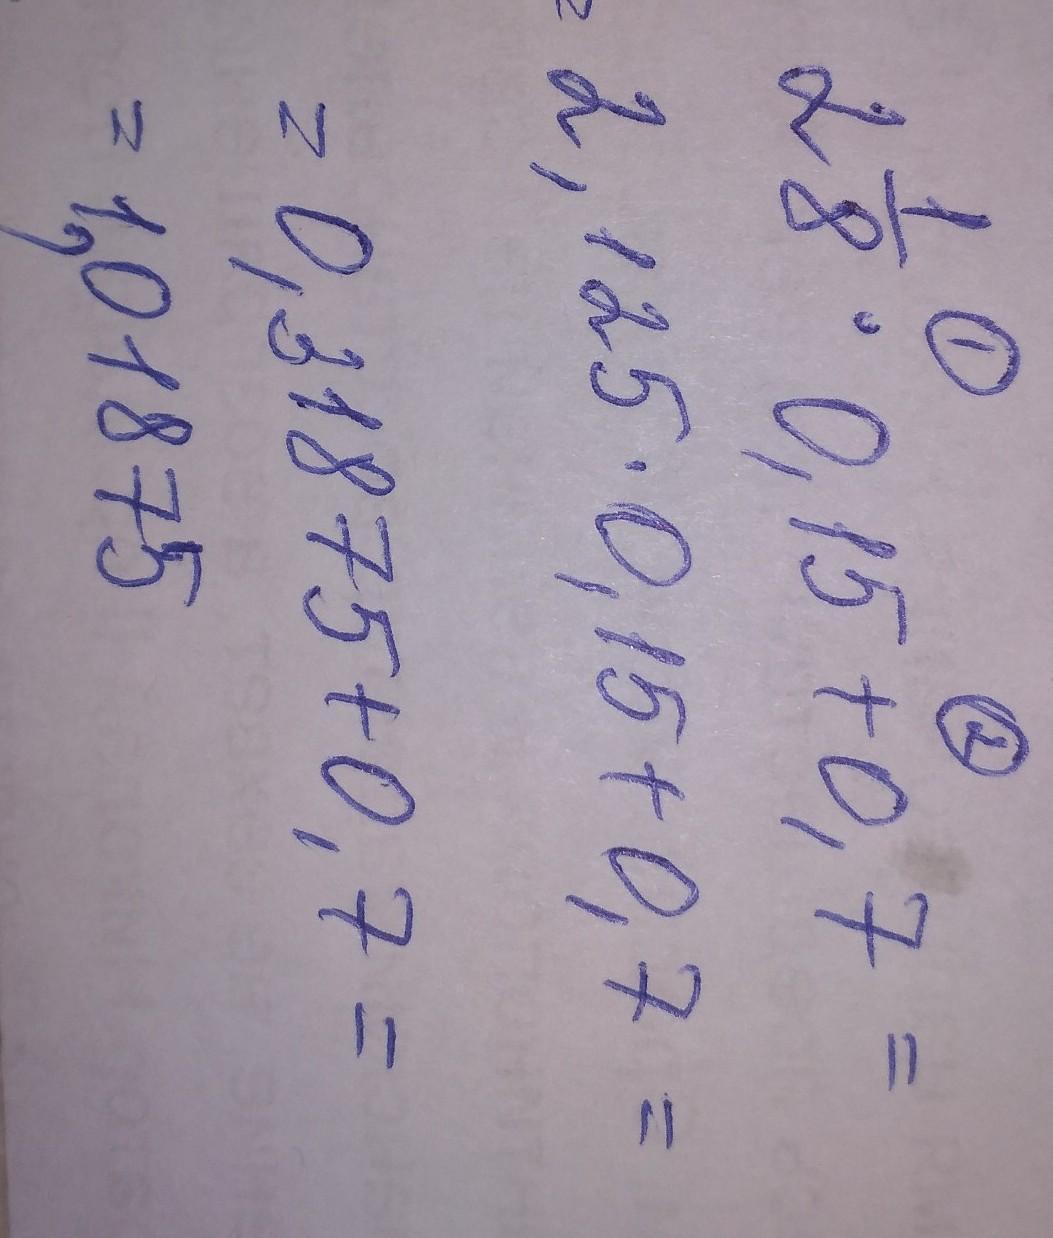 ① ②
2 1/8 · 0,15 + 0,7 =
= 2,125 · 0,15 + 0,7 =
= 0,31875 + 0,7 =
= 1,01875